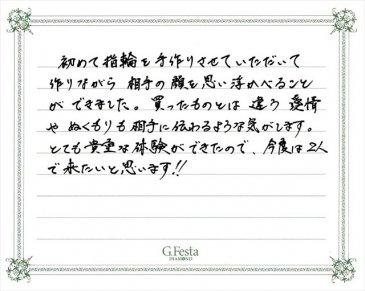 初めて指輪を手作りさせていただいて
作りながら 相手の顔を思い浮かべること
ができました。買ったものとは 違う 愛情
や ぬくもりも相手に伝わるような気がします。
とても貴重な体験ができたので、今度は2人
で来たいと思います!!
G.Festa
DIAMOND